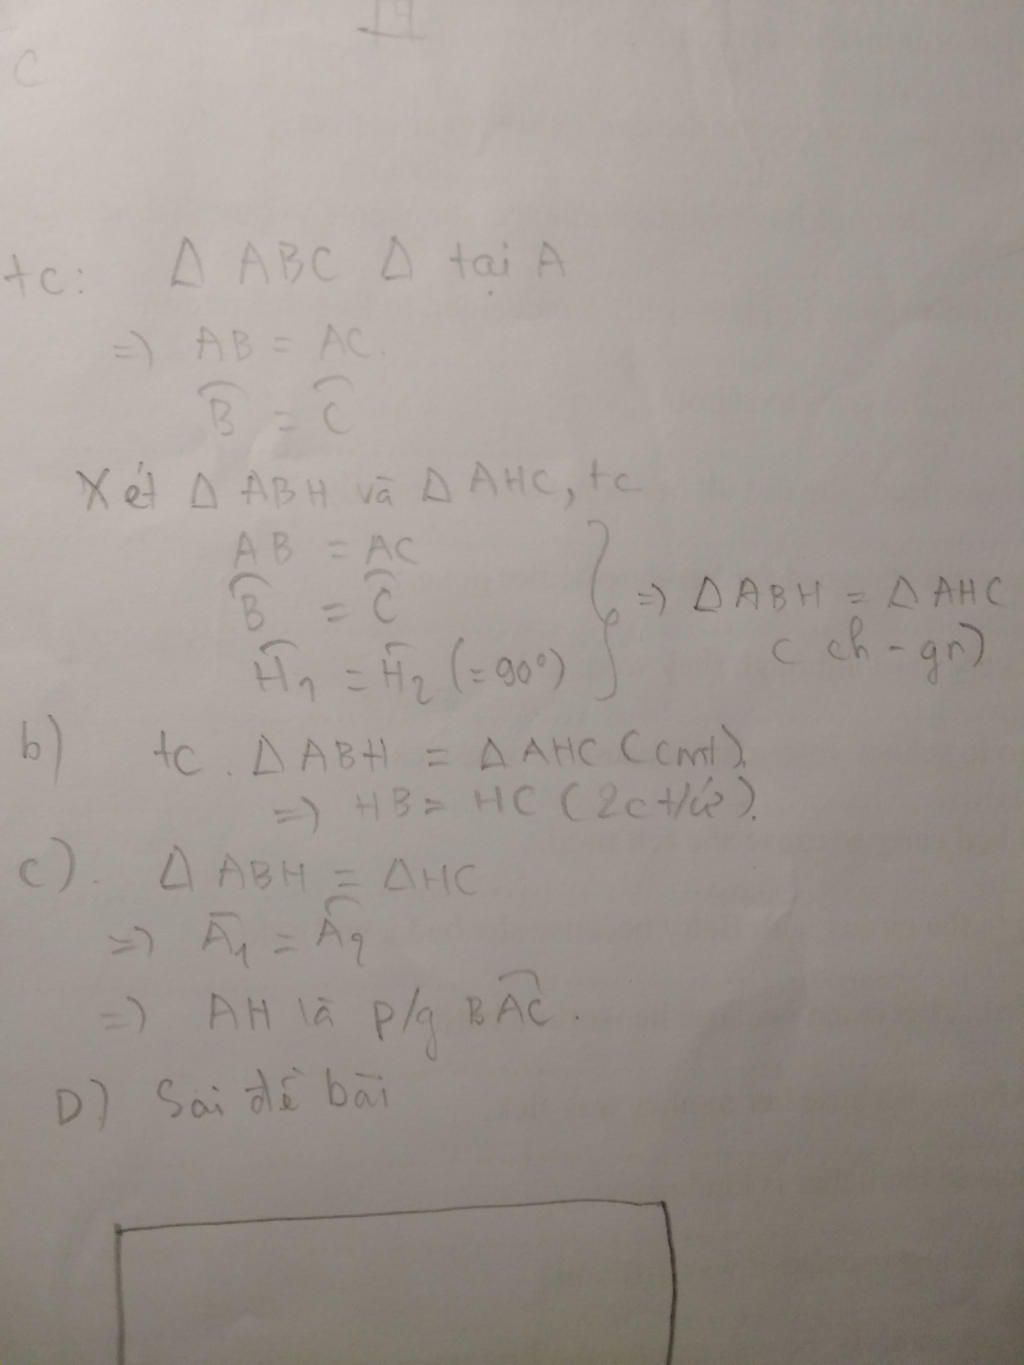 C
tc: Δ ABC Δ tại A
=> AB = AC.
B̂ = Ĉ
Xét Δ ABH và Δ AHC, tc
AB = AC
B̂ = Ĉ
Ĥ₁ = Ĥ₂ (=90°)
=> Δ ABH = Δ AHC
( ch - gn)
b) tc. Δ ABH = Δ AHC (cmt).
=> HB = HC (2c t/ứ).
c). Δ ABH = ΔHC
=> Â₁ = Â₂
=> AH là p/g BÂC.
D) Sai đề bài